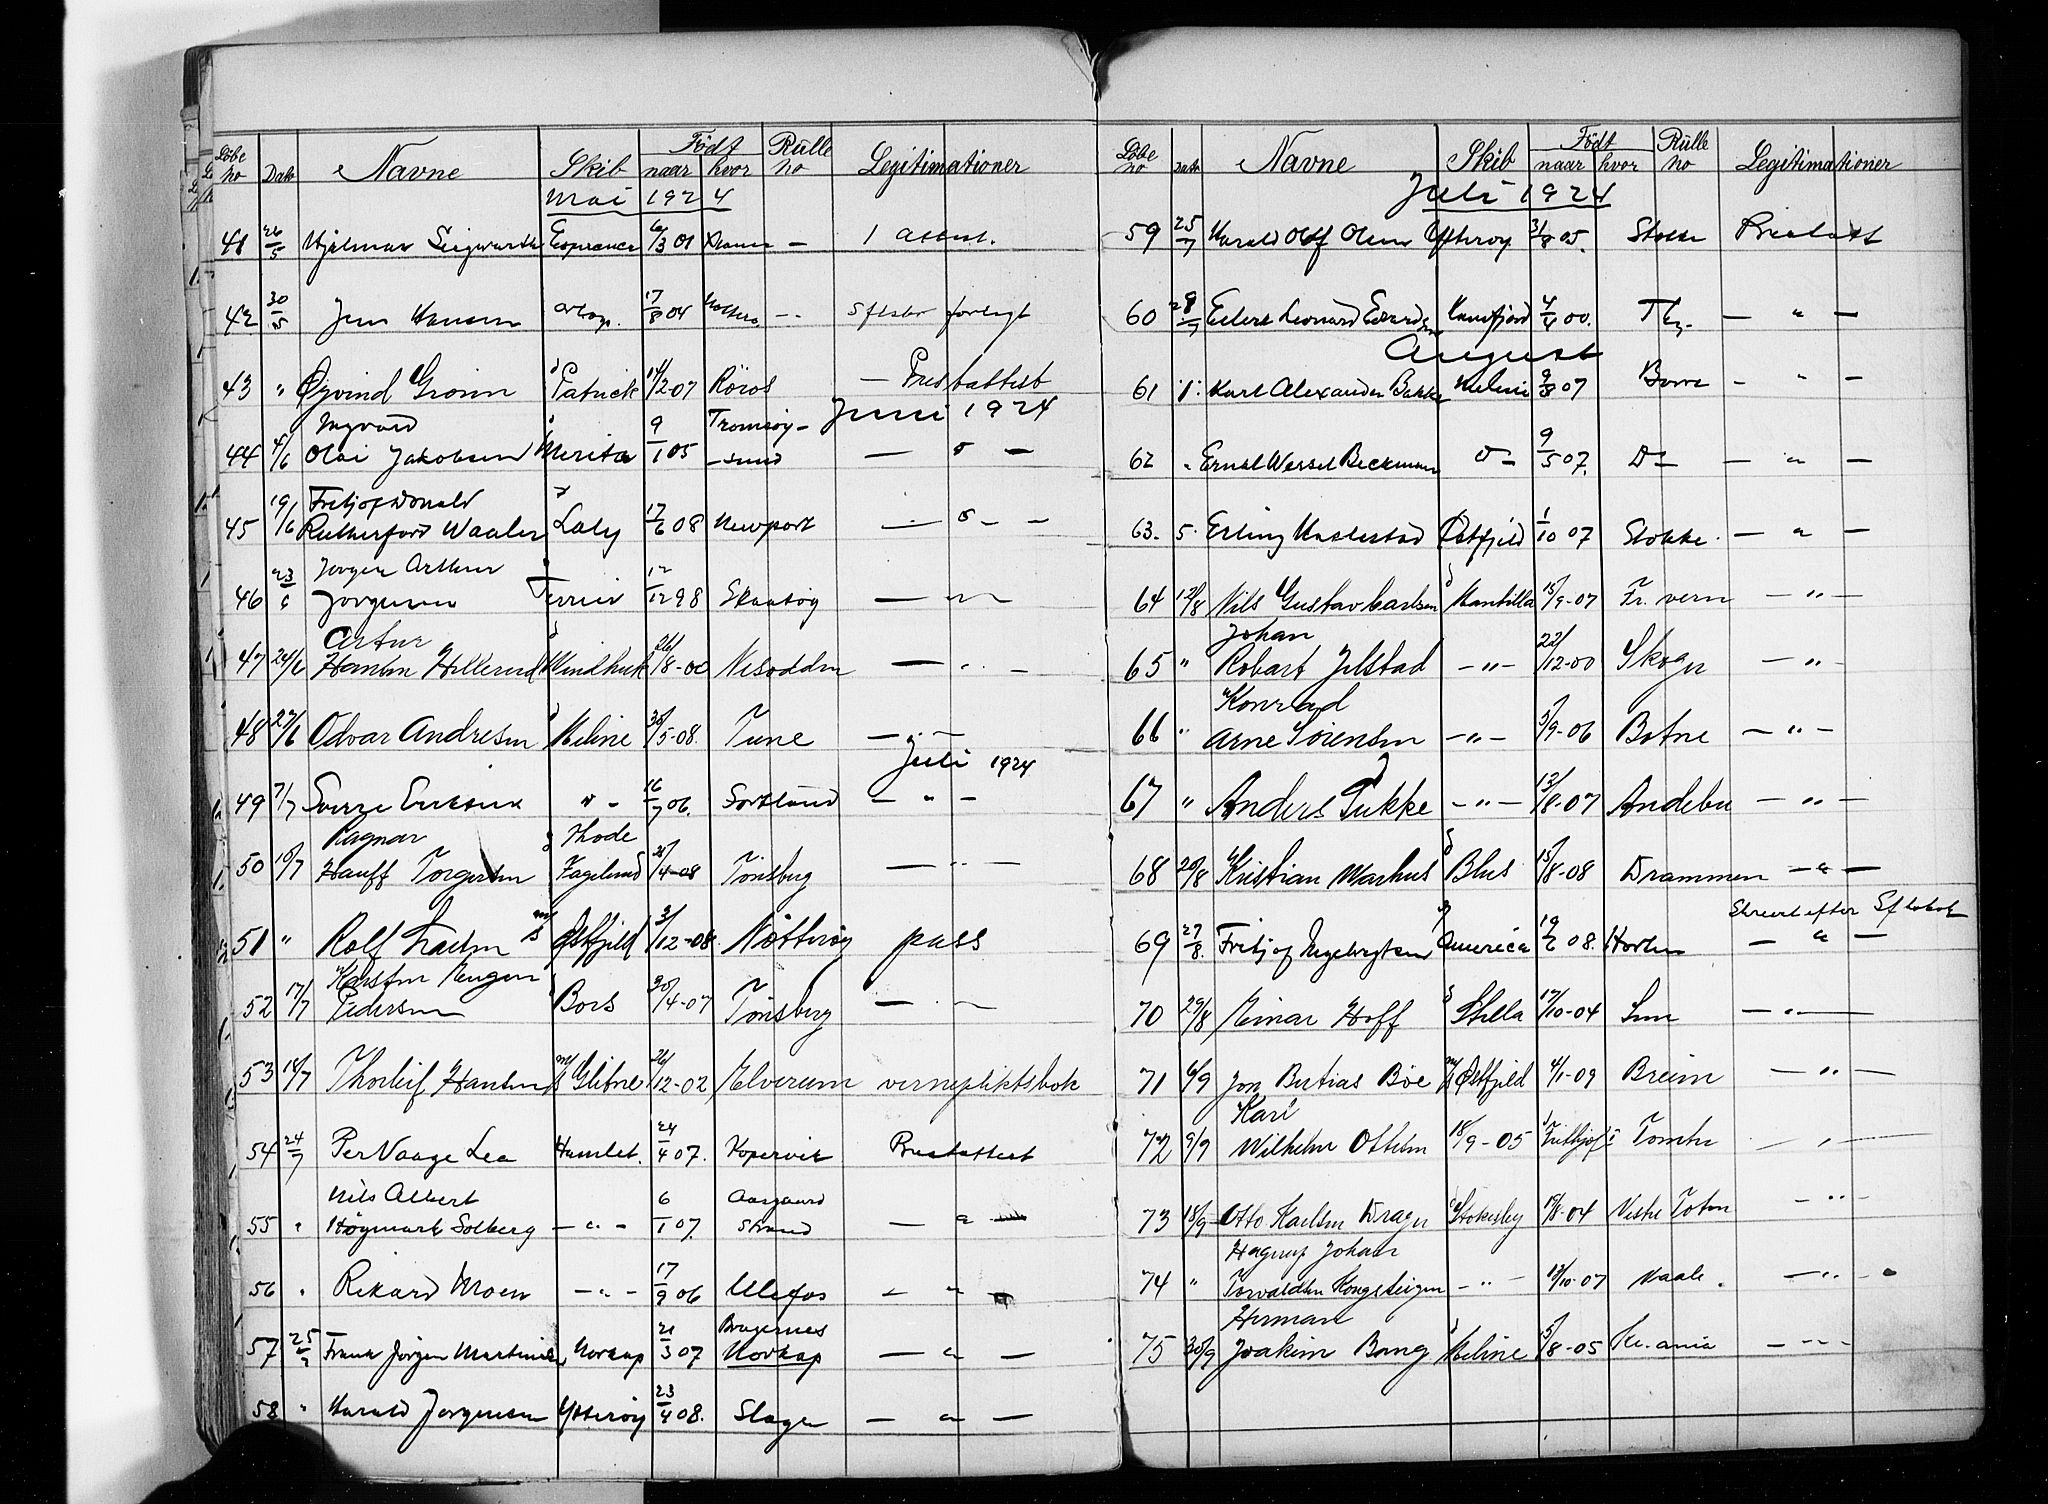 Löbe no Dato Navne Skib Födt naar hvor Rulle no Legitimationer
Mai 1924
41 26/5 Hjalmar Esperance 6/3 01 — 1 attest.
42 30/5 Jens Hansen 17/8 04 — Sftsbr forlagt
43 " Øyvind Patrick 14/2 07 Röros — Prestattest
Juni 1924
Ingvard Tromsöy-
44 4/6 Olai Jakobsen Merita 9/1 05 -sund — o —
Fritjof Donald
45 19/6 Rutherford Waaler Laly 17/6 08 Newport — o — —
Jørgen Arthur
46 23/6 Jørgensen Terrier 12/12 98 Skaatøy — " —
Artur
47 24/6 Hansen Hillerud Windhuk 26/8-00 Nesodden — " —
48 27/6 Odvar Andresen Meline 30/5-08. Tune — " —
Juli 1924
49 7/7 Sverre Eriksen " - 16/7 06. Sortland — " —
Ragnar Thode
50 10/7 Hauff Torgersen Fagelund /4-08 Tönsberg — " —
51 " Rolf m/s Østfjeld 3/12-08 Nötteröy pass
Karsten Jörgen
52 17/7 Pedersen Bors 30/4-07 Tönsberg — " —
53 18/7 Thorleif Hansen m/s Glitne 26/12-02 Elverum vernepliktsbok
54 24/7 Per Vaage Lea Hamlet. 24/4 07. Kopervik Prestattest
Nils Albert Aasgaard
55 " Högmark Solberg — " — 6/1 07. strand — " —
56 " Rikard Moen — " — 17/9 06 Ulefos — " —
Bragernes
57 25/7 Frank Jörgen Martinsen Norkap 21/3 07 Norkap — " —
58 " Harald Jørgensen Ytterøy 23/4 08. Slagen — " —
Löbe no Dato Navne Skib Födt naar hvor Rulle no Legitimationer
Juli 1924
59 25/7 Harald Olaf Olsen Ytterøy 31/8 05. Stokke Prestatt
60 28/7 Eilert Leonard Edvardsen 4/4 00. — " —
August
61 1. Karl Alexander Bakke Meline 9/8 07 Borre — " —
62 " Ernst Wessel Beckman D — 9/5 07. D — — " —
63. 5. Erling Haslestad Østfjeld 1/10 07 Stokke. — " —
64 12/8 Nils Gustav Carlsen Mantilla 15/9-07 Fr. vern — " —
Johan
65 " Robart Jelstad — " — 22/12-00 Skoger — " —
Konrad
66 " Arne Sörensen — " — 5/9-06 Botne — " —
67 " Anders Tukke — " — 13/8-07 Andebu — " —
68 20/8 Kristian Marhus Blus 15/8-08 Drammen — " —
Skrevet efter Sftsbok
69 27/8. Fritjof Ingebregtsen America 19/2 08. Horten — " —
70 29/8 Einar Hoff Stella 17/10-04 — " —
71 6/9 Jon Butias Böe m/s Østfjeld 4/1-09 Breim — " —
Karl
72 9/9 Wilhelm Ottesen 18/9-05 Frithjof — " —
73 18/9 Otto Karlsen Drager Stokesby 19/8-04 Vestre Toten — " —
Hagrup Johan
74 " Torvaldsen Kongsteigen — " — 12/10-07 Vaale. — " —
Herman
75 30/9 Joakim Bang Meline 5/8-05 Kr.ania — " —